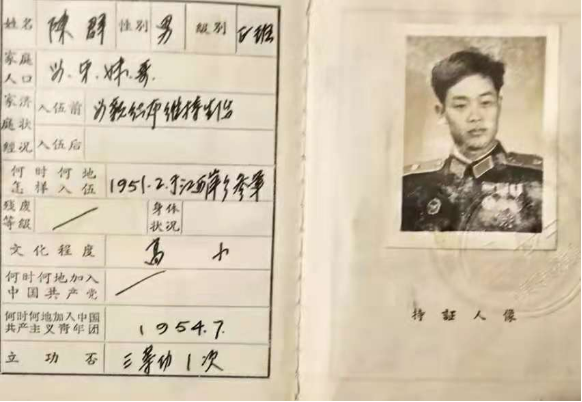 姓名 陳群 性别 男 级别 正班
家庭人口 父.母.妹.弟
家庭经济状况 入伍前 为教师维持生活
入伍后
何时何地怎样入伍 1951.2.于江西萍乡参军
残废等级 / 身体状况
文化程度 高小
何时何地加入中国共产党 /
何时何地加入中国共产主义青年团 1954.7.
立功否 三等功1次
持証人像